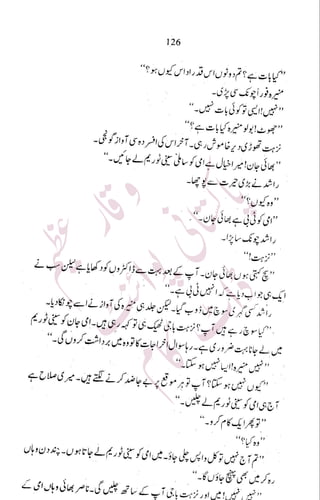 126
"کیا بات ہے؟ تم دونوں اس قدر اداس کیوں ہو؟"
منیرہ فوراً چونک سی پڑی۔
"نہیں! ایسی تو کوئی بات نہیں۔"
"جھوٹ! بولو منیرہ کیا بات ہے؟"
نزہت تھوڑی دیر خاموش رہی۔ آخر اس کی افسردہ سی آواز گونجی۔
"بھائی جان! میرا خیال ہے امی کو ساملی سینی ٹوریم لے جائیں۔"
راشد نے بڑی حیرت سے پوچھا۔
"وہ کیوں؟"
"امی کو ٹی بی ہے بھائی جان۔"
راشد چونک سا پڑا۔
"نزہت!"
"سچ کہتی ہوں بھائی جان۔ آپ کے بعد بہت سے ڈاکٹروں کو دکھایا ہے لیکن سب نے
ایک ہی جواب دیا ہے کہ انہیں ٹی بی ہے۔"
راشد کسی گہری سوچ میں ڈوب گیا۔ لیکن جلد ہی منیرہ کی آواز نے اسے چونکا دیا۔
"کیا سوچ رہے ہیں آپ؟ نزہت باجی ٹھیک ہی تو کہہ رہی ہیں۔ امی جان کو سینی ٹوریم
میں لے جانا بہت ضروری ہے۔ رہا سوال اخراجات کا تو وہ میں برداشت کروں گی۔"
"نہیں منیرہ! ایسا نہیں ہو سکتا۔"
"کیوں نہیں ہو سکتا؟ آپ تو ہر موقع پر بے جا ضد کرنے لگتے ہیں۔ میری صلاح ہے
آج ہی امی کو سینی ٹوریم لے چلیں۔"
"تو پھر ایک کام کرو۔"
"وہ کیا؟"
"تم آج نہیں تو کل واپس چلی جاؤ۔ میں امی کو سینی ٹوریم لے جاتا ہوں۔ چند دن وہاں
رہ کر میں بھی پہنچ جاؤں گا۔"
"نہیں! میں اور نزہت باجی آپ کے ساتھ چلیں گی۔ ناصر بھائی وہاں امی کے
پاکستانی پوائنٹ
وقار عظیم